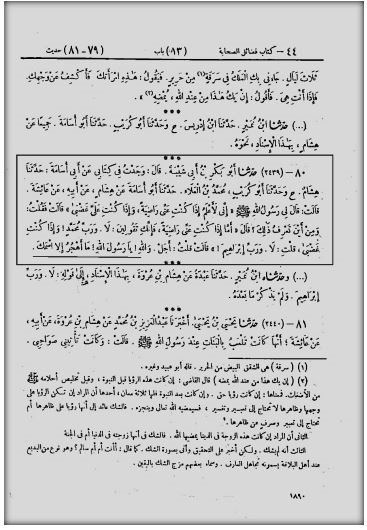 ٤٤ - كتاب فضائل الصحابة (١٣) باب (٧٩ - ٨١) حديث
ثَلَاثَ لَيَالٍ. جَاءَنِي بِكِ الْمَلَكُ فِي سَرَقَةٍ(١) مِنْ حَرِيرٍ. فَيَقُولُ: هَذِهِ امْرَأَتُكَ. فَأَكْشِفُ عَنْ وَجْهِكِ.
فَإِذَا أَنْتِ هِيَ. فَأَقُولُ: إِنْ يَكُ هَذَا مِنْ عِنْدِ اللهِ، يُمْضِهِ(٢)».
***
(...) حَدَّثَنَا ابْنُ نُمَيْرٍ. حَدَّثَنَا ابْنُ إِدْرِيسَ. ح وَحَدَّثَنَا أَبُو كُرَيْبٍ. حَدَّثَنَا أَبُو أُسَامَةَ. جَمِيعًا عَنْ
هِشَامٍ، بِهَذَا الْإِسْنَادِ، نَحْوَهُ.
***
٨٠ - (٢٤٣٩) حَدَّثَنَا أَبُو بَكْرِ بْنُ أَبِي شَيْبَةَ. قَالَ: وَجَدْتُ فِي كِتَابِي عَنْ أَبِي أُسَامَةَ: حَدَّثَنَا
هِشَامٌ. ح وَحَدَّثَنَا أَبُو كُرَيْبٍ، مُحَمَّدُ بْنُ الْعَلَاءِ. حَدَّثَنَا أَبُو أُسَامَةَ عَنْ هِشَامٍ، عَنْ أَبِيهِ، عَنْ عَائِشَةَ.
قَالَتْ: قَالَ لِي رَسُولُ اللهِ ﷺ «إِنِّي لَأَعْلَمُ إِذَا كُنْتِ عَنِّي رَاضِيَةً، وَإِذَا كُنْتِ عَلَيَّ غَضْبَى» قَالَتْ فَقُلْتُ:
وَمِنْ أَيْنَ تَعْرِفُ ذَلِكَ؟ قَالَ «أَمَّا إِذَا كُنْتِ عَنِّي رَاضِيَةً، فَإِنَّكِ تَقُولِينَ: لَا. وَرَبِّ مُحَمَّدٍ! وَإِذَا كُنْتِ
غَضْبَى، قُلْتِ: لَا. وَرَبِّ إِبْرَاهِيمَ!» قَالَتْ قُلْتُ: أَجَلْ. وَاللهِ! يَا رَسُولَ اللهِ! مَا أَهْجُرُ إِلَّا اسْمَكَ.
***
(...) وَحَدَّثَنَاهُ ابْنُ نُمَيْرٍ. حَدَّثَنَا عَبْدَةُ عَنْ هِشَامِ بْنِ عُرْوَةَ، بِهَذَا الْإِسْنَادِ، إِلَى قَوْلِهِ: لَا. وَرَبِّ
إِبْرَاهِيمَ. وَلَمْ يَذْكُرْ مَا بَعْدَهُ.
***
٨١ - (٢٤٤٠) حَدَّثَنَا يَحْيَى بْنُ يَحْيَى. أَخْبَرَنَا عَبْدُ الْعَزِيزِ بْنُ مُحَمَّدٍ عَنْ هِشَامِ بْنِ عُرْوَةَ، عَنْ أَبِيهِ،
عَنْ عَائِشَةَ؛ أَنَّهَا كَانَتْ تَلْعَبُ بِالْبَنَاتِ عِنْدَ رَسُولِ اللهِ ﷺ. قَالَتْ: وَكَانَتْ تَأْتِينِي صَوَاحِبِي.
(١) (سرقة) هي الشقق البيض من الحرير. قاله أبو عبيد وغيره.
(٢) (إن يك هذا من عند الله يمضه) قال القاضي: إن كانت هذه الرؤيا قبل النبوة، وقبل تخليص أحلامه ﷺ
من الأضغاث، فمعناها: إن كانت رؤيا حق. وإن كانت بعد النبوة فلها ثلاثة معان، أحدها أن المراد إن تكن الرؤيا على
وجهها وظاهرها لا تحتاج إلى تعبير وتفسير، فسيمضيه الله تعالى وينجزه. فالشك عائد إلى أنها رؤيا على ظاهرها أم
تحتاج إلى تعبير وصرف عن ظاهرها.
الثاني أن المراد إن كانت هذه الزوجة في الدنيا يمضها الله. فالشك في أنها زوجته في الدنيا أم في الجنة
الثالث أنه لم يشك. ولكن أخبر على التحقيق وأتى بصورة الشك. كما قال: أأنت أم أم سالم؟ وهو نوع من البديع
عند أهل البلاغة يسمونه تجاهل العارف. وسماه بعضهم مزج الشك باليقين.
١٨٩٠